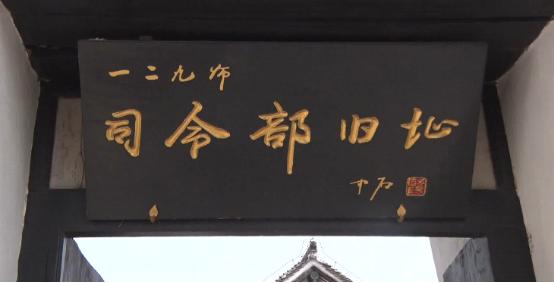 一二九师
司令部旧址
中石